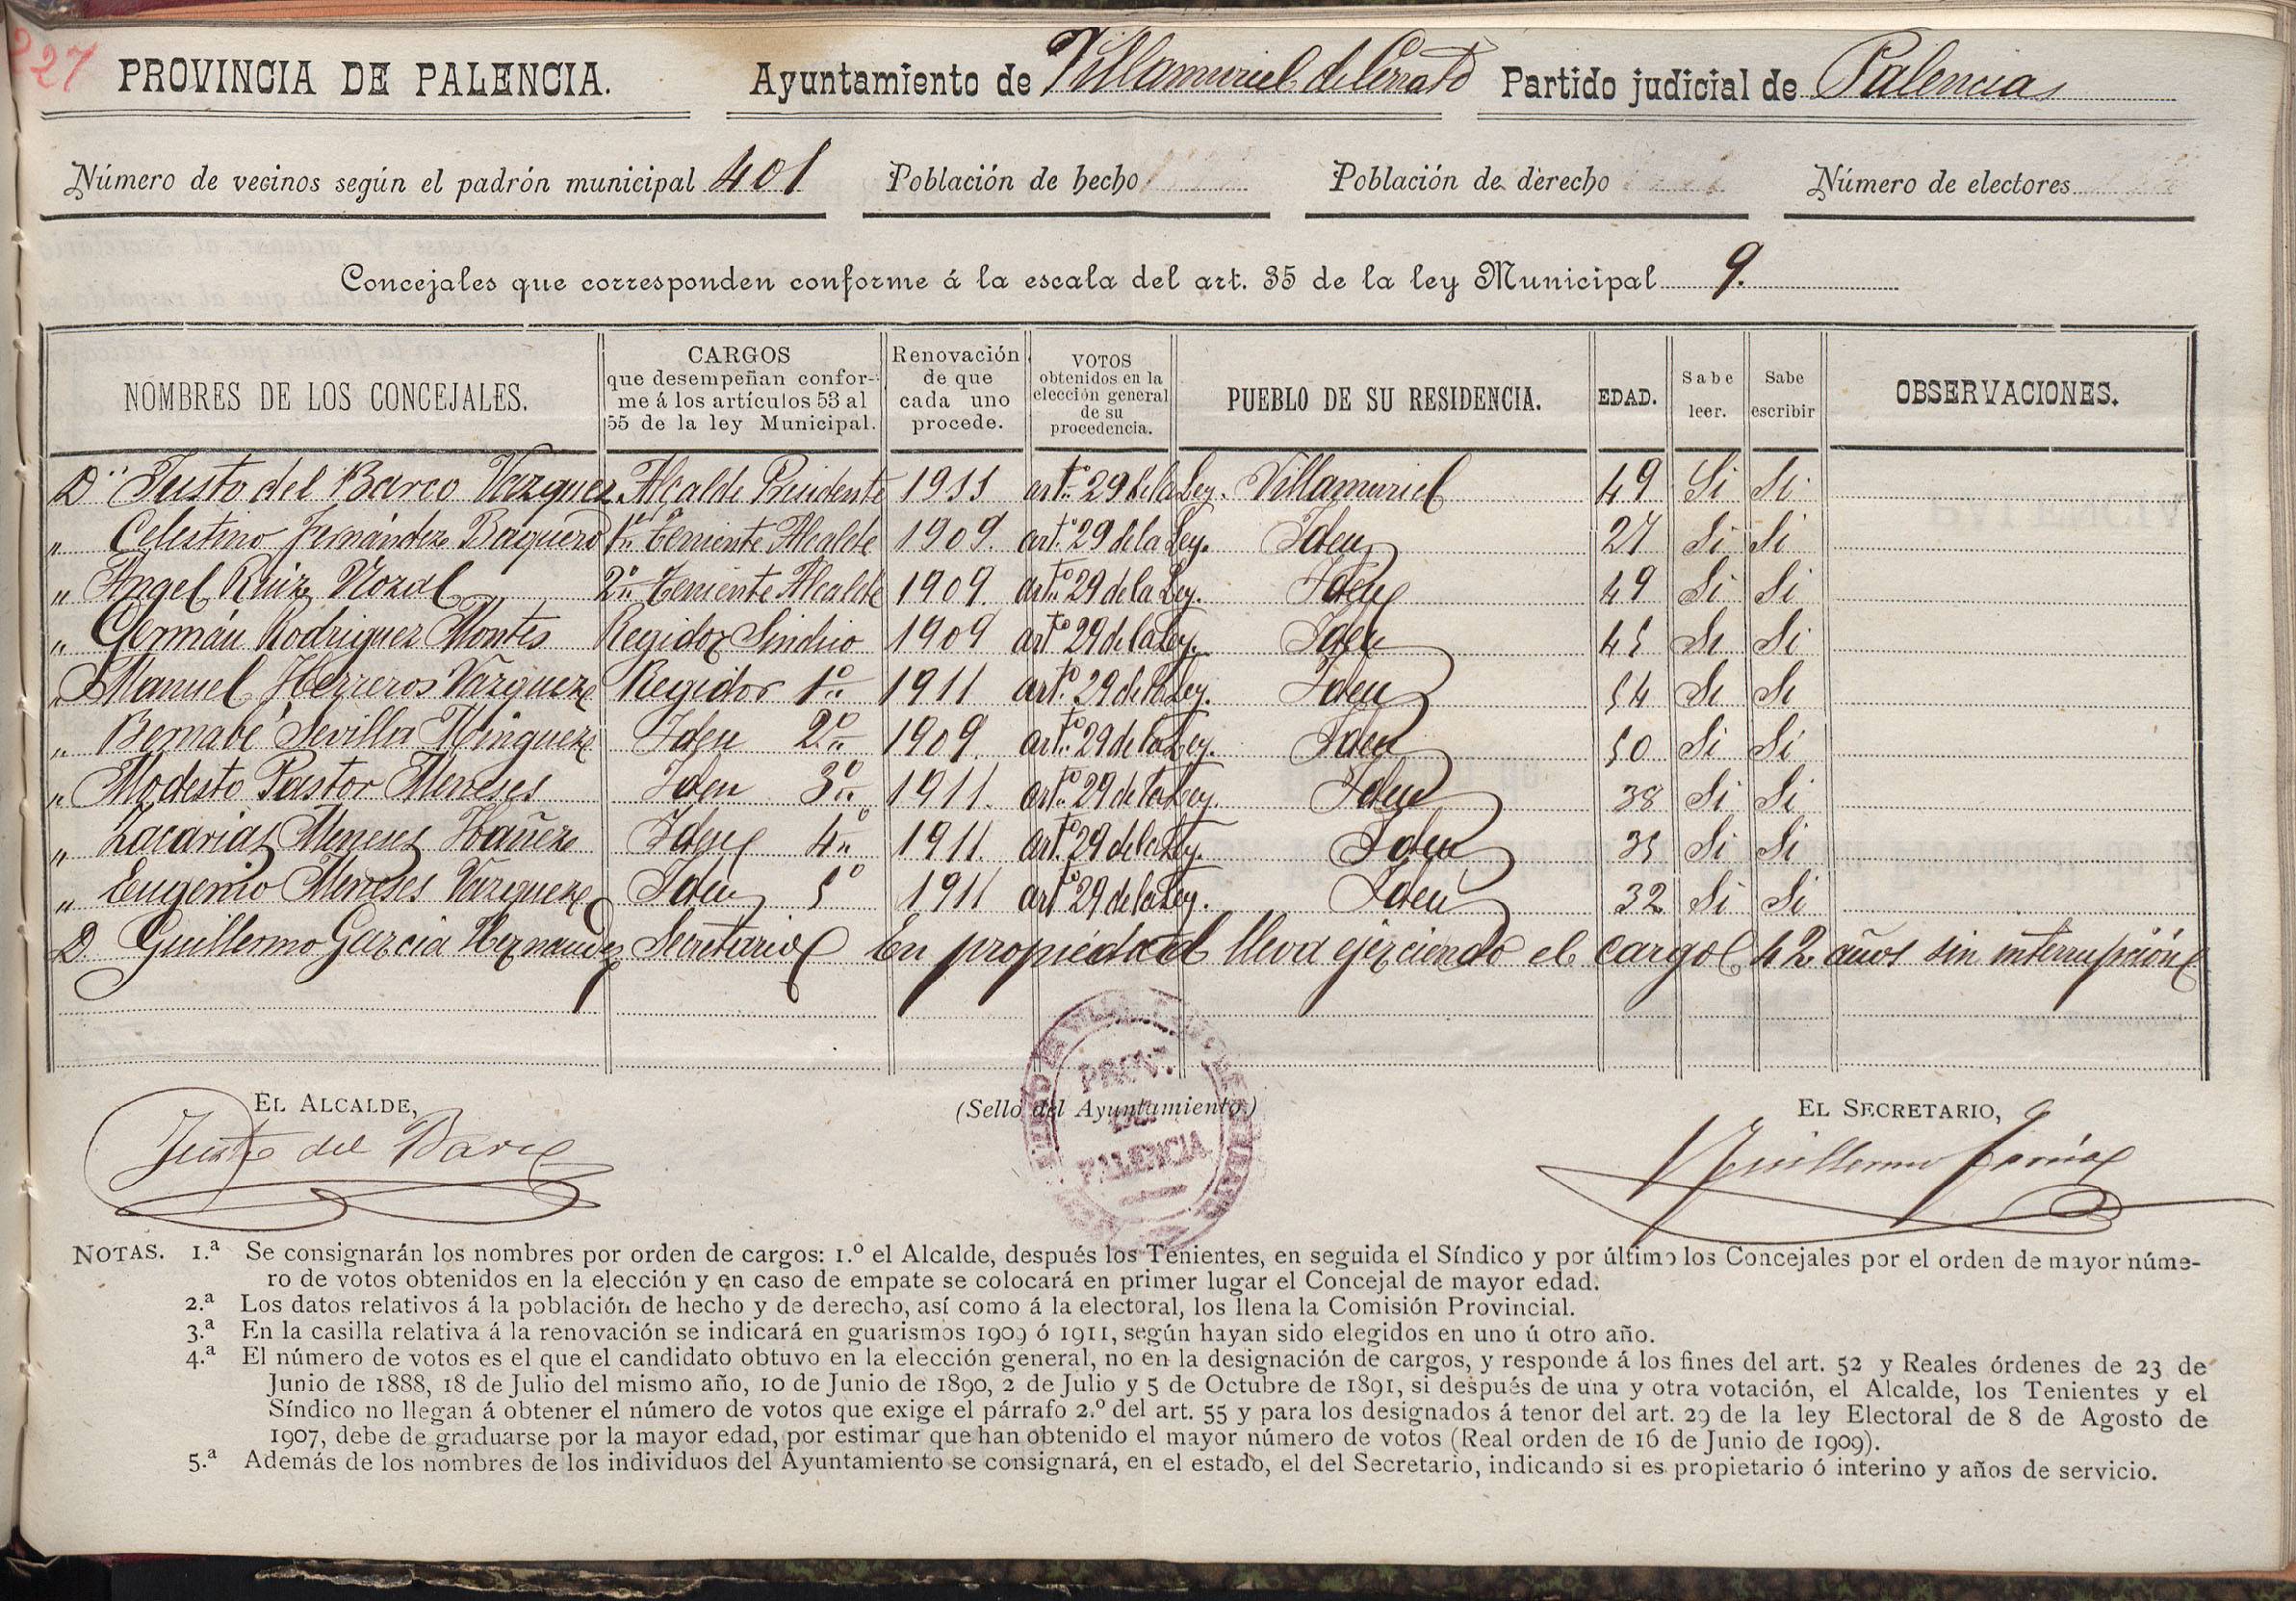 227
PROVINCIA DE PALENCIA. Ayuntamiento de Villamuriel de Cerrato Partido judicial de Palencia
Número de vecinos según el padrón municipal 401 Población de hecho Población de derecho Número de electores
Concejales que corresponden conforme á la escala del art. 35 de la ley Municipal 9.
NOMBRES DE LOS CONCEJALES. CARGOS que desempeñan confor-me á los artículos 53 al 55 de la ley Municipal. Renovación de que cada uno procede. VOTOS obtenidos en la elección general de su procedencia. PUEBLO DE SU RESIDENCIA. EDAD. Sabe leer. Sabe escribir OBSERVACIONES.
Dn Justo del Barco Vazquez Alcalde Presidente 1911 arto 29 de la Ley. Villamuriel 49 Si Si
„ Celestino Fernández Baquero 1er Teniente Alcalde 1909. arto 29 de la Ley. Idem 27 Si Si
„ Angel Ruiz Nozal 2o Teniente Alcalde 1909. arto 29 de la Ley. Idem 49 Si Si
„ Germán Rodriguez Montes Regidor Sindico 1909 arto 29 de la Ley. Idem 45 Si Si
„ Manuel Herreros Vazquez Regidor 1o 1911 arto 29 de la Ley. Idem 54 Si Si
„ Bernabé Sevilla Minguez Idem 2o 1909. arto 29 de la Ley. Idem 50 Si Si
„ Modesto Pastor Meneses Idem 3o 1911. arto 29 de la Ley Idem 38 Si Si
„ Zacarias Meneses Ibañez Idem 4o 1911. arto 29 de la Ley. Idem 35 Si Si
„ Eugenio Meneses Vazquez Idem 5o 1911 arto 29 de la Ley. Idem 32 Si Si
D. Guillermo Garcia Hernandez Secretario En propiedad lleva ejerciendo el cargo 42 años sin interrupción
EL ALCALDE, (Sello del Ayuntamiento.) EL SECRETARIO,
Justo del Barco Guillermo García
PROV.ª DE PALENCIA
NOTAS. 1.ª Se consignarán los nombres por orden de cargos: 1.º el Alcalde, después los Tenientes, en seguida el Síndico y por último los Concejales por el orden de mayor núme-
ro de votos obtenidos en la elección y en caso de empate se colocará en primer lugar el Concejal de mayor edad.
2.ª Los datos relativos á la población de hecho y de derecho, así como á la electoral, los llena la Comisión Provincial.
3.ª En la casilla relativa á la renovación se indicará en guarismos 1909 ó 1911, según hayan sido elegidos en uno ú otro año.
4.ª El número de votos es el que el candidato obtuvo en la elección general, no en la designación de cargos, y responde á los fines del art. 52 y Reales órdenes de 23 de
Junio de 1888, 18 de Julio del mismo año, 10 de Junio de 1890, 2 de Julio y 5 de Octubre de 1891, si después de una y otra votación, el Alcalde, los Tenientes y el
Síndico no llegan á obtener el número de votos que exige el párrafo 2.º del art. 55 y para los designados á tenor del art. 29 de la ley Electoral de 8 de Agosto de
1907, debe de graduarse por la mayor edad, por estimar que han obtenido el mayor número de votos (Real orden de 16 de Junio de 1909).
5.ª Además de los nombres de los individuos del Ayuntamiento se consignará, en el estado, el del Secretario, indicando si es propietario ó interino y años de servicio.